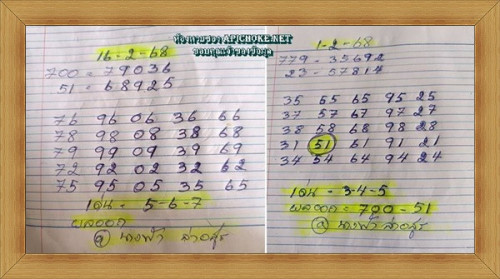 ห้องหวยซอง APICHOKE.NET
ขอบคุณเจ้าของข้อมูล
16-2-68
700 = 79036
51 = 68925
76 96 06 36 66
78 98 08 38 68
79 99 09 39 69
72 92 02 32 62
75 95 05 35 65
เด่น = 5-6-7
ผลออก
@ นางฟ้า
1-2-68
779 = 35692
23 - 57814
35 65 65 95 25
37 57 67 97 27
38 58 68 98 28
31 51 61 91 21
34 54 64 94 24
เด่น = 3-4-5
ผลออก = 700 - 51
@ นางฟ้า